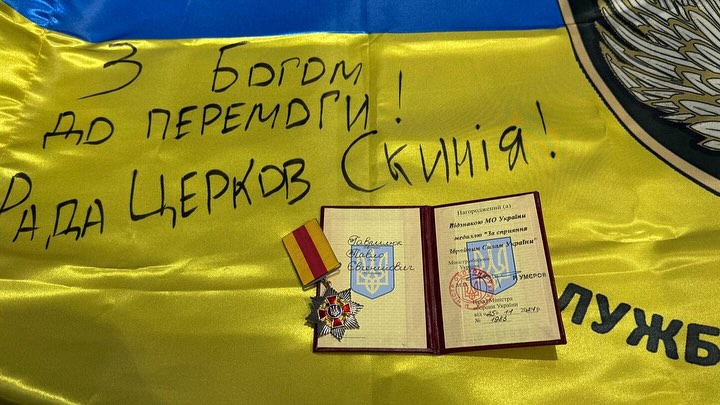 З Богом
до перемоги!
Рада Церков Скинія!
Павло
Євгенійович
Нагороджений (а)
Відзнакою МО України
медаллю "За сприяння
Збройним Силам України"
УМЄРОВ
Наказ Міністра
оборони України
від «25» 11
№ 1983
ЛУЖБ